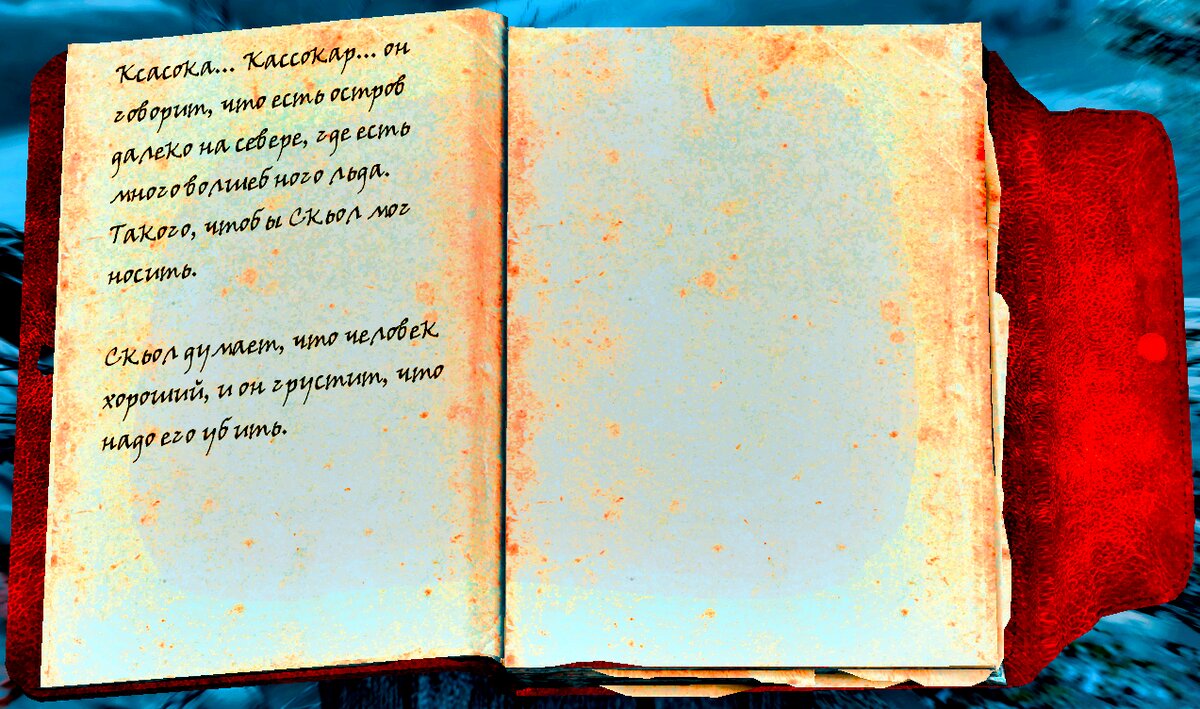 Ксасока... Кассокар... он
говорит, что есть остров
далеко на севере, где есть
много волшебного льда.
Такого, чтобы Скьол мог
носить.
Скьол думает, что человек
хороший, и он грустит, что
надо его убить.